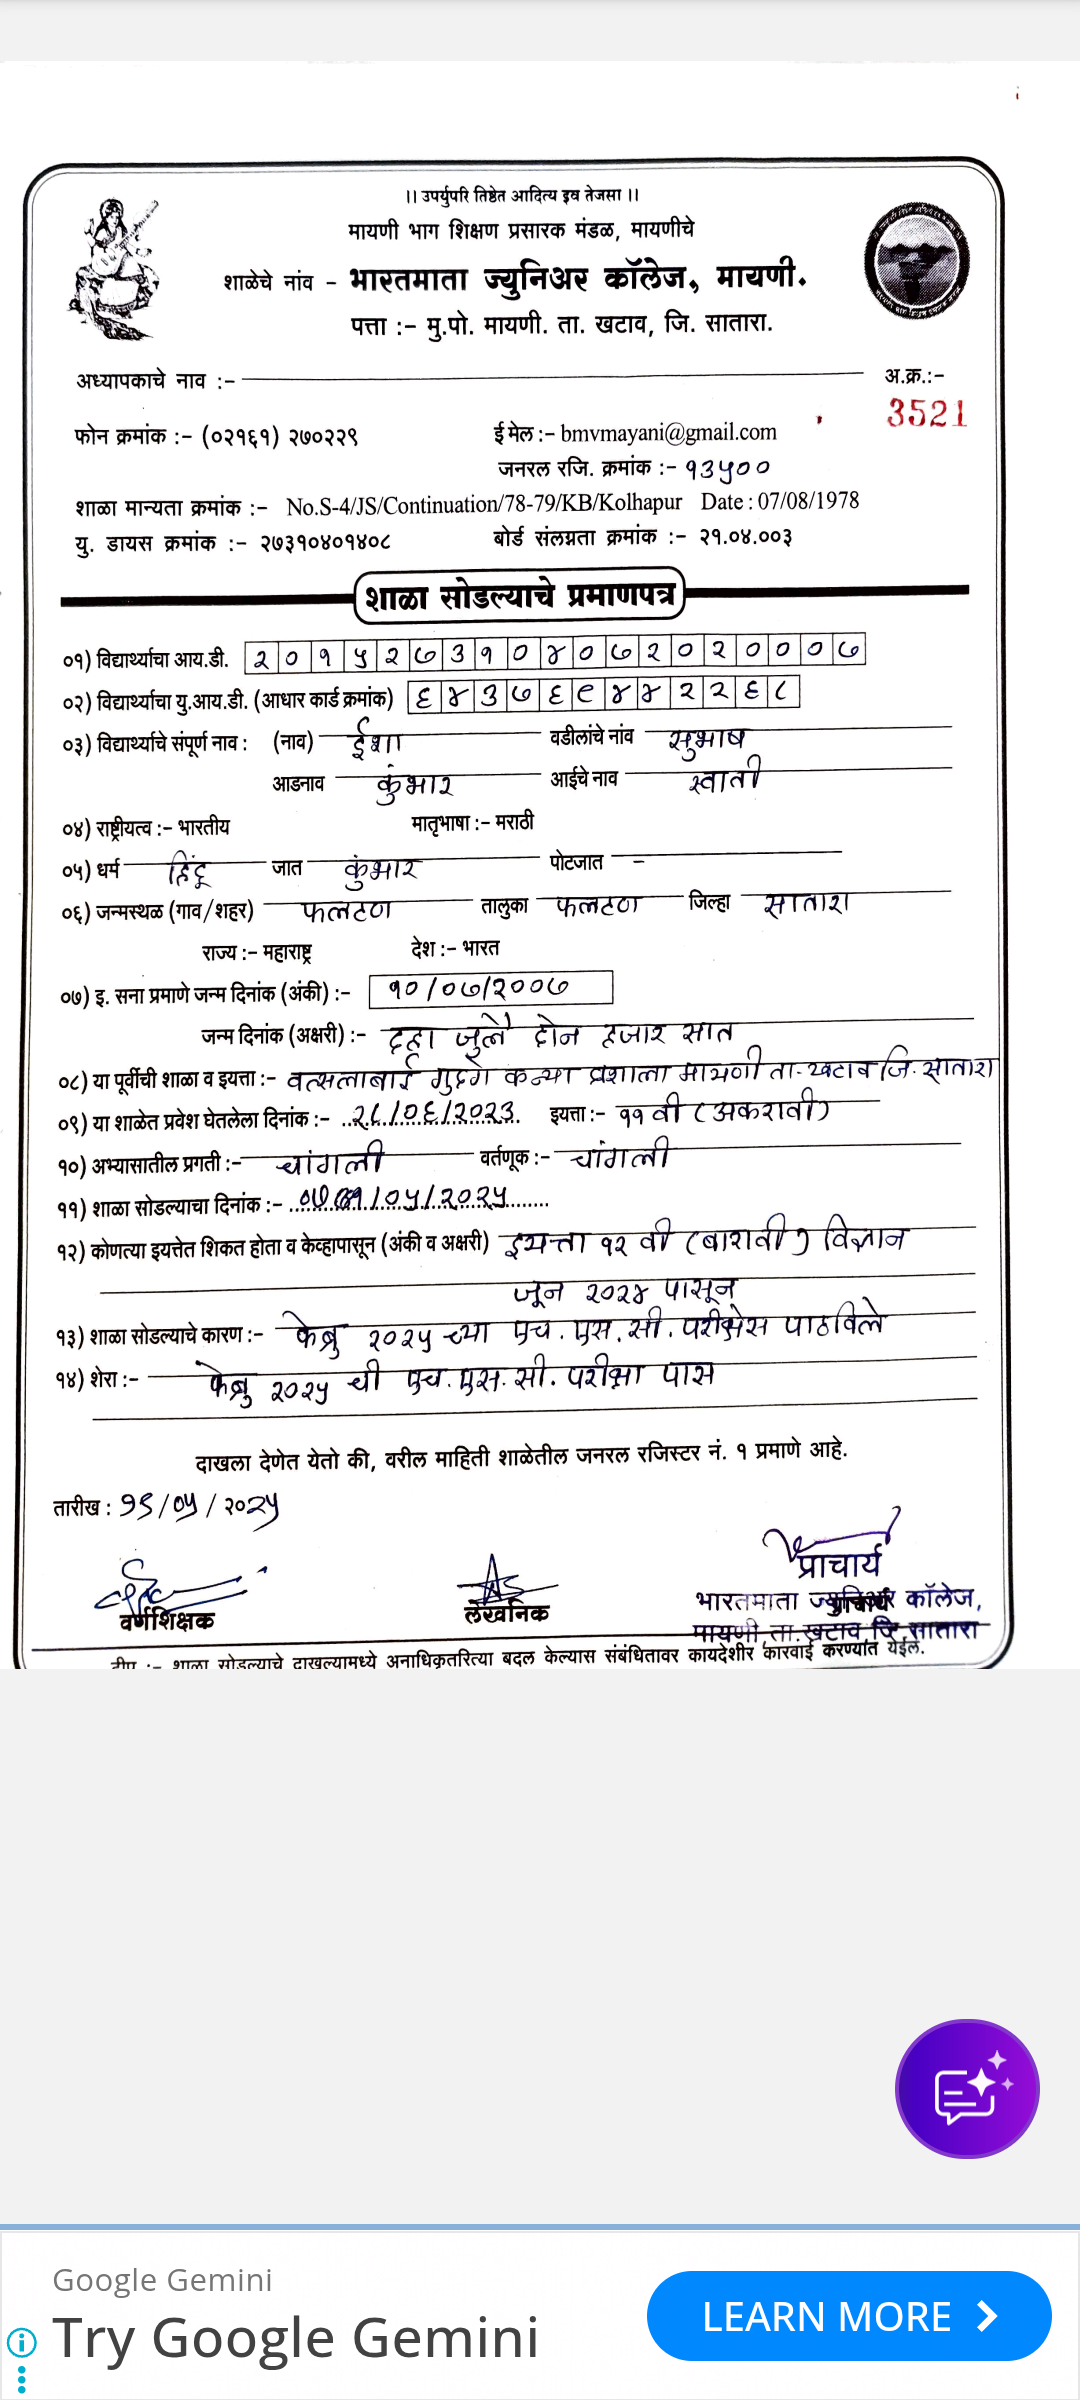 ।। उपर्युपरि तिष्ठेत आदित्य इव तेजसा ।।
मायणी भाग शिक्षण प्रसारक मंडळ, मायणीचे
शाळेचे नांव - भारतमाता ज्युनिअर कॉलेज, मायणी.
पत्ता :- मु.पो. मायणी. ता. खटाव, जि. सातारा.
अध्यापकाचे नाव :- अ.क्र.:-
3521
फोन क्रमांक :- (०२१६१) २७०२२९ ई मेल :- bmvmayani@gmail.com
जनरल रजि. क्रमांक :- १३५००
शाळा मान्यता क्रमांक :- No.S-4/JS/Continuation/78-79/KB/Kolhapur Date : 07/08/1978
यु. डायस क्रमांक :- २७३१०४०१४०८ बोर्ड संलग्नता क्रमांक :- २१.०४.००३
शाळा सोडल्याचे प्रमाणपत्र
०१) विद्यार्थ्याचा आय.डी. २०१५२७३१०४०७२०२०००७
०२) विद्यार्थ्याचा यु.आय.डी. (आधार कार्ड क्रमांक) ६४३७६९४४२२६८
०३) विद्यार्थ्याचे संपूर्ण नाव : (नाव) ईशा वडीलांचे नांव सुभाष
आडनाव कुंभार आईचे नाव स्वाती
०४) राष्ट्रीयत्व :- भारतीय मातृभाषा :- मराठी
०५) धर्म हिंदू जात कुंभार पोटजात -
०६) जन्मस्थळ (गाव/शहर) फलटण तालुका फलटण जिल्हा सातारा
राज्य :- महाराष्ट्र देश :- भारत
०७) इ. सना प्रमाणे जन्म दिनांक (अंकी) :- १०/०७/२००७
जन्म दिनांक (अक्षरी) :- दहा जुलै दोन हजार सात
०८) या पूर्वीची शाळा व इयत्ता :- वत्सलाबाई गुदगे कन्या प्रशाला मायणी ता. खटाव जि. सातारा
०९) या शाळेत प्रवेश घेतलेला दिनांक :- २८/०६/२०२३. इयत्ता :- ११ वी (अकरावी)
१०) अभ्यासातील प्रगती :- चांगली वर्तणूक :- चांगली
११) शाळा सोडल्याचा दिनांक :- /०५/२०२५
१२) कोणत्या इयत्तेत शिकत होता व केव्हापासून (अंकी व अक्षरी) इयत्ता १२ वी (बारावी) विज्ञान
जून २०२४ पासून
१३) शाळा सोडल्याचे कारण :- फेब्रु २०२५ च्या एच. एस. सी. परीक्षेस पाठविले
१४) शेरा :- फेब्रु २०२५ ची एच. एस. सी. परीक्षा पास
दाखला देणेत येतो की, वरील माहिती शाळेतील जनरल रजिस्टर नं. १ प्रमाणे आहे.
तारीख : १५/०५/२०२५
प्राचार्य
वर्गशिक्षक लेखनिक भारतमाता ज्युनिअर कॉलेज,
मायणी, ता. खटाव जि. सातारा
टीप :- शाळा सोडल्याचे दाखल्यामध्ये अनाधिकृतरित्या बदल केल्यास संबंधितावर कायदेशीर कारवाई करण्यांत येईल.
Google Gemini
Try Google Gemini
LEARN MORE